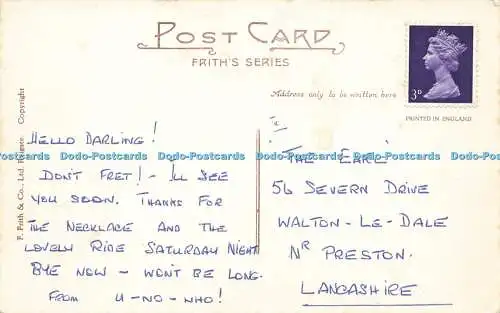 POST CARD
FRITH'S SERIES
Address only to be written here
3D
PRINTED IN ENGLAND
F. Frith & Co., Ltd. Reigate. Copyright
HELLO DARLING!
Dodo-Postcards Dodo-Postcards Dodo-Postcards Dodo-Postcards Dodo-Postcards Dodo-Postcards
DON'T FRET! - I'LL SEE
YOU SOON. THANKS FOR
THE NECKLACE AND THE
LOVELY RIDE SATURDAY NIGHT
BYE NOW - WON'T BE LONG.
FROM U-NO-WHO!
"THE EARL"
56 SEVERN DRIVE
WALTON-LE-DALE
NR PRESTON.
LANCASHIRE